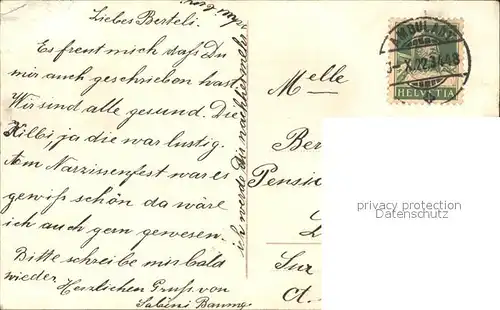 Liebes Berteli.
Es freut mich daß Du
mir auch geschrieben hast
Wir sind alle gesund. Die
Kilbi, ja die war lustig.
Am Narzissenfest war es
gewiß schön da wäre
ich auch gern gewesen.
Bitte schreibe mir bald
wieder Herzlichen Gruß von
ich werde Dir nachher mehr
Melle
Ber
Pensio
Sur
HELVETIA
AMBULANT
privacy protection
Datenschutz